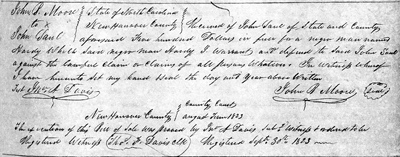 John R. Moore } State of North Carolina
to } New Hanover County } Received of John Saul of State and County
John Saul } aforesaid Five hundred Dollars in full for a negro man named
Hardy Which said negro man Hardy I Warrant and defend to said John Saul
against the lawful Claim or Claims of all persons Whatever. In Witness Whereof
I have hereunto set my hand & seal the day and Year above Written
Test A Davis John R Moore (seal)
County Court
New Hanover County } August Term 1853
The execution of this Bill of Sale was proved by A Davis Witness & ordered to be
Registered Witness Tho. F. Davis clk } Registered Sept. 30th 1853